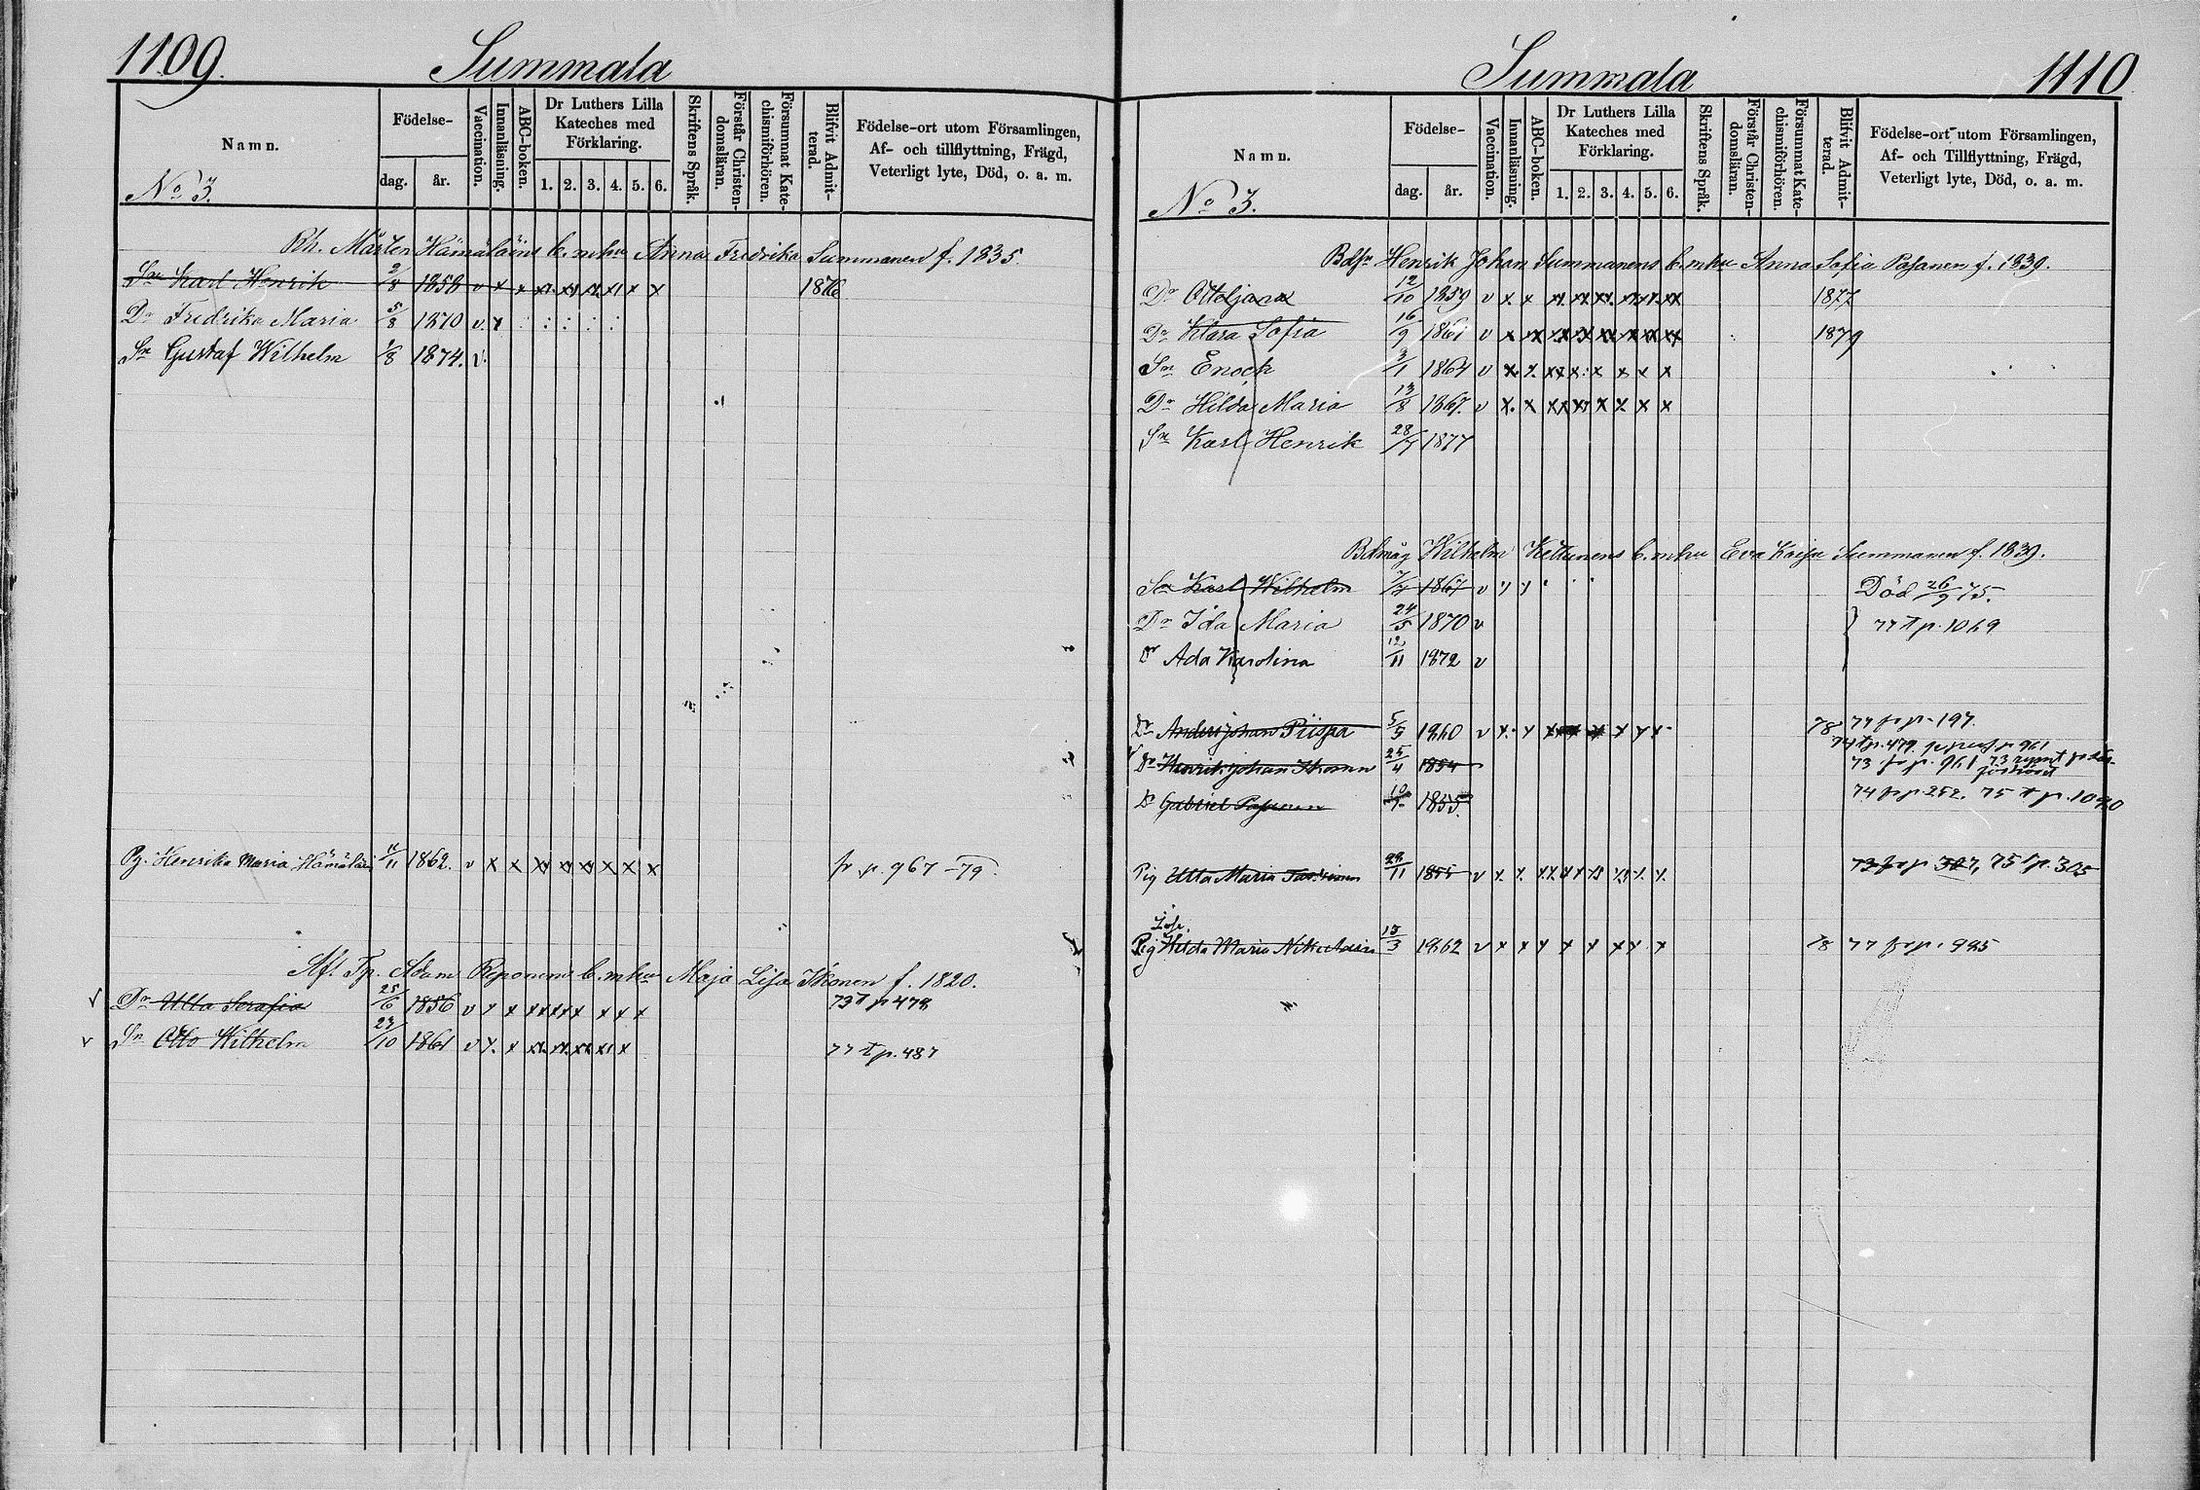 1109.
Summala
Namn.
Födelse-
dag.
år.
Vaccination.
Innanläsning.
ABC-boken.
Dr Luthers Lilla
Kateches med
Förklaring.
1. 2. 3. 4. 5. 6.
Skriftens Språk.
Förstår Christen-
domsläran.
Försummat Kate-
chismiförhören.
Blifvit Admit-
terad.
Födelse-ort utom Församlingen,
Af- och tillflyttning, Frägd,
Veterligt lyte, Död, o. a. m.
No 3.
Bh. Mårten Hämäläins b. m. hu Anna Fredrika Summanen f. 1835.
Sn Karl Henrik 2/8 1858 v x x x x x x x x 1876
Dr Fredrika Maria 5/8 1870 v x
Sn Gustaf Wilhelm 1/8 1874. v.
Pg. Henrika Maria Hämäläin 11/11 1862. v x x x x x x x x fr p. 967 - 79.
Afl. Tp. Adam Reponens b. m. hu Maja Lisa Ikonen f. 1820.
Dr Ulla Serafia 25/6 1856 v x x x x x x x x 73 t p 478
Sn Otto Wilhelm 23/10 1861 v x. x x x x x x 77 t p. 487
Summala
1110
Namn.
Födelse-
dag.
år.
Vaccination.
Innanläsning.
ABC-boken.
Dr Luthers Lilla
Kateches med
Förklaring.
1. 2. 3. 4. 5. 6.
Skriftens Språk.
Förstår Christen-
domsläran.
Försummat Kate-
chismiförhören.
Blifvit Admit-
terad.
Födelse-ort utom Församlingen,
Af- och Tillflyttning, Frägd,
Veterligt lyte, Död, o. a. m.
No 3.
Bdsn Henrik Johan Summanens b. m. hu Anna Sofia Pasanen f. 1839.
Dr Otteljana 12/10 1859 v x x x x x x x x 1877
Dr Klara Sofia 16/9 1861 v x x x x x x x x 1879
Sn Enoch 3/1 1864 v x. x. x x x x x x
Dr Hilda Maria 13/8 1867. v x. x x x x x x x
Sn Karl Henrik 28/7 1877
Bdmåg Wilhelm Kettunens b. m. hu Eva Kaisa Summanen f. 1839.
Sn Karl Wilhelm 7/7 1867 v Död 26/9 75.
Dr Ida Maria 24/5 1870 v 77 t p. 1069
Dr Ada Karolina 12/11 1872 v
Dr Anders Johan Piispa 5/5 1860 v x. x x x x x x x 78 77 fr p. 197.
Dr Henrik Johan Ikonen 25/4 1854 74 t p. 479.
73 fr p. 961
Dr Gabriel Pasanen 1855. 74 fr p. 252. 75 t p. 1090
Pig Ulla Maria 1855 v x. x. x x x x x x 73 fr p 327, 75 t p. 305
Pig Hilda Maria 15/3 1862 v x x x x x x x x 78 77 fr p. 985